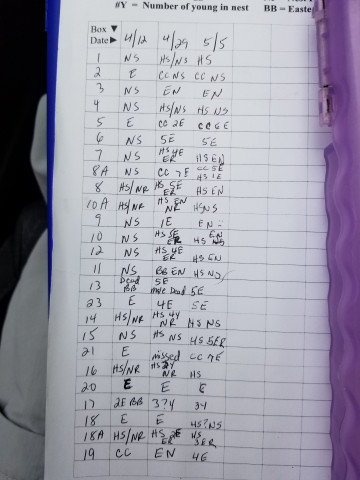 #Y = Number of young in nest BB = Easte
Box ▼
Date ► 4/12 4/29 5/5
1 NS HS/NS HS
2 E CC NS CC NS
3 NS EN EN
4 NS HS/NS HS NS
5 E CC 2E CC 6E
6 NS 5E 5E
7 NS HS 4E ER HS EN
8A NS CC 7E CC 5E HS 1E
8 HS/NR HS 5E ER HS EN
10A HS/NR HS EN NR HS NS
9 NS 1E EN -
10 NS HS 5E ER EN HS NS
12 NS HS 4E ER HS EN
11 NS BB EN HS NS
13 Dead BB 5E male Dead 5E
23 E 4E 5E
14 HS/NR HS 4Y NR HS NS
15 NS HS NS HS 5ER
21 E missed CC 7E
16 HS/NR HS NR HS
20 E E E
17 2E BB 3?Y 3Y
18 E E HS?NS
18A HS/NR HS 2E ER HS 3ER
19 CC EN 4E